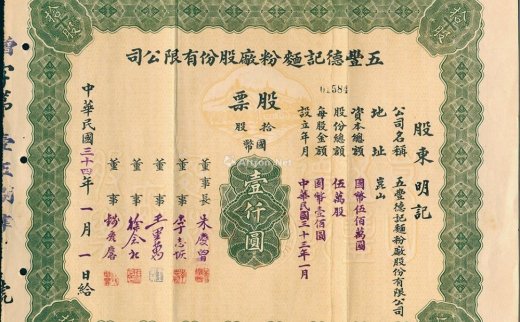 五豐德記麵粉廠股份有限公司
01584
股東明記
公司名稱 五豐德記麵粉廠股份有限公司
地址 崑山
資本總額 國幣伍佰萬圓
股份總額 伍萬股
每股金額 國幣壹佰圓
設立年月 中華民國三十三年一月
股票
拾股
國幣
壹仟圓
董事長 朱慶曾
董事 李志
董事 王
董事 徐
董事
中華民國三十四年一月一日給
拾股
拾股
ArtronNet